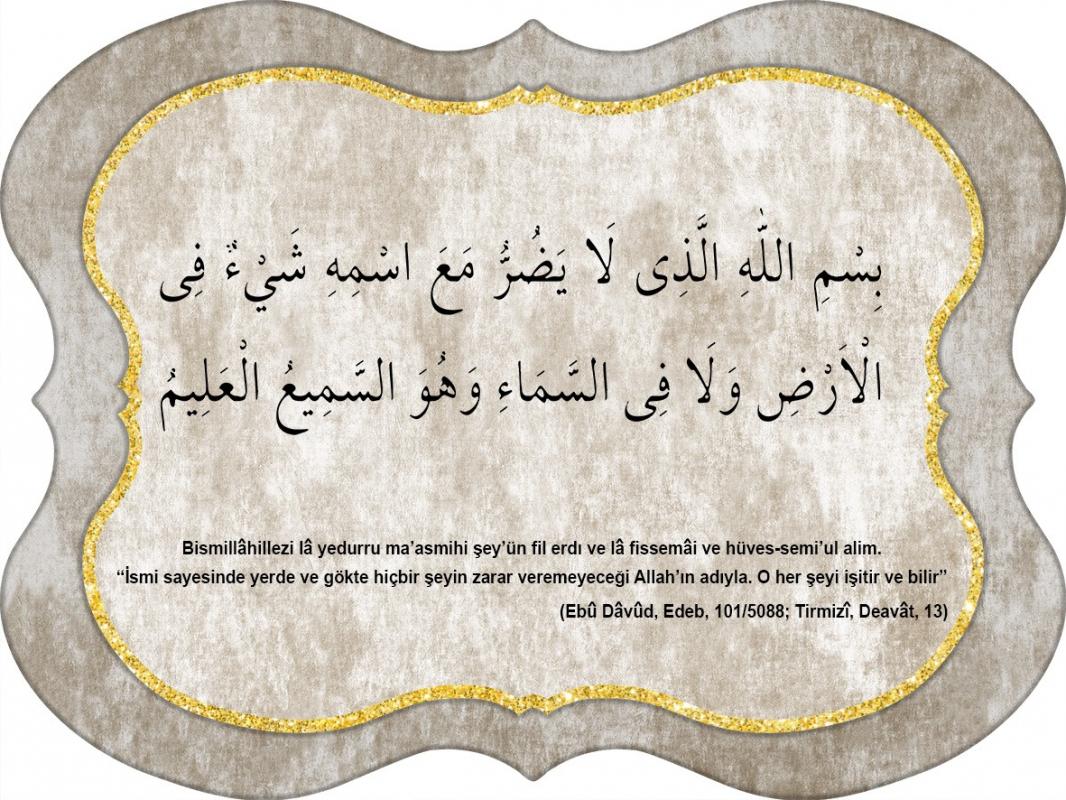 بِسْمِ اللّٰهِ الَّذِى لَا يَضُرُّ مَعَ اسْمِهِ شَيْءٌ فِى
الْاَرْضِ وَلَا فِى السَّمَاءِ وَهُوَ السَّمِيعُ الْعَلِيمُ
Bismillâhillezi lâ yedurru ma’asmihi şey’ün fil erdı ve lâ fissemâi ve hüves-semi’ul alim.
“İsmi sayesinde yerde ve gökte hiçbir şeyin zarar veremeyeceği Allah’ın adıyla. O her şeyi işitir ve bilir”
(Ebû Dâvûd, Edeb, 101/5088; Tirmizî, Deavât, 13)